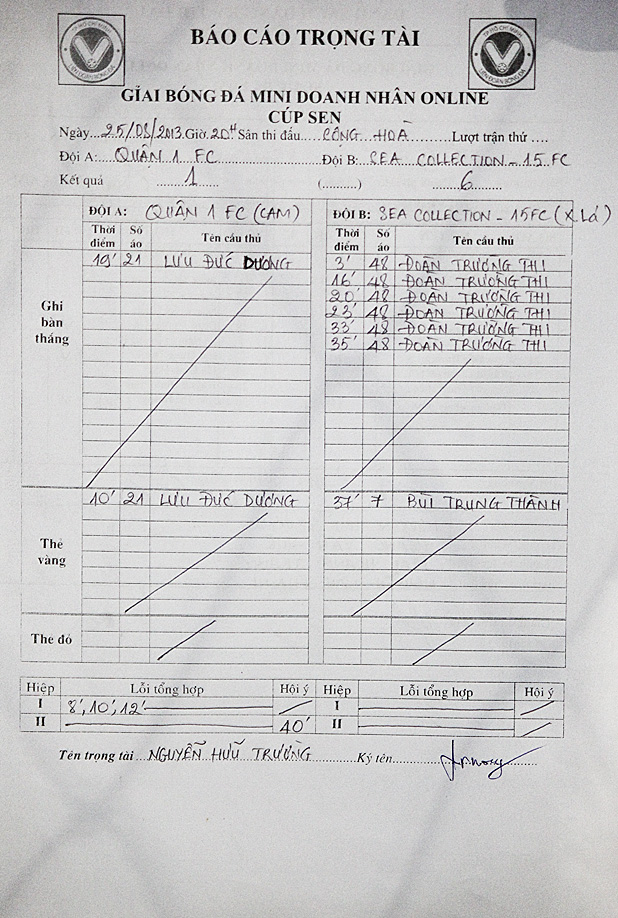 TP HỒ CHÍ MINH
LIÊN ĐOÀN BÓNG ĐÁ
BÁO CÁO TRỌNG TÀI
TP HỒ CHÍ MINH
LIÊN ĐOÀN BÓNG ĐÁ
GIẢI BÓNG ĐÁ MINI DOANH NHÂN ONLINE
CÚP SEN
Ngày...25/08/2013.Giờ.20H Sân thi đấu.....CỘNG HOÀ.......... Lượt trận thứ ....
Đội A: QUẬN 1 FC Đội B: SEA COLLECTION - 15 FC
Kết quả 1 (..........) 6
ĐỘI A: QUẬN 1 FC (CAM) ĐỘI B: SEA COLLECTION - 15FC (X.Lá)
Thời điểm Số áo Tên cầu thủ Thời điểm Số áo Tên cầu thủ
Ghi bàn thắng
19' 21 LƯU ĐỨC DƯƠNG 3' 48 ĐOÀN TRƯỜNG THI
16' 48 ĐOÀN TRƯỜNG THI
20' 48 ĐOÀN TRƯỜNG THI
23' 48 ĐOÀN TRƯỜNG THI
33' 48 ĐOÀN TRƯỜNG THI
35' 48 ĐOÀN TRƯỜNG THI
Thẻ vàng
10' 21 LƯU ĐỨC DƯƠNG 37' 7 BÙI TRUNG THÀNH
Thẻ đỏ
Hiệp Lỗi tổng hợp Hội ý Hiệp Lỗi tổng hợp Hội ý
I 8', 10', 12' I
II 40' II
Tên trọng tài NGUYỄN HỮU TRƯỜNG Ký tên